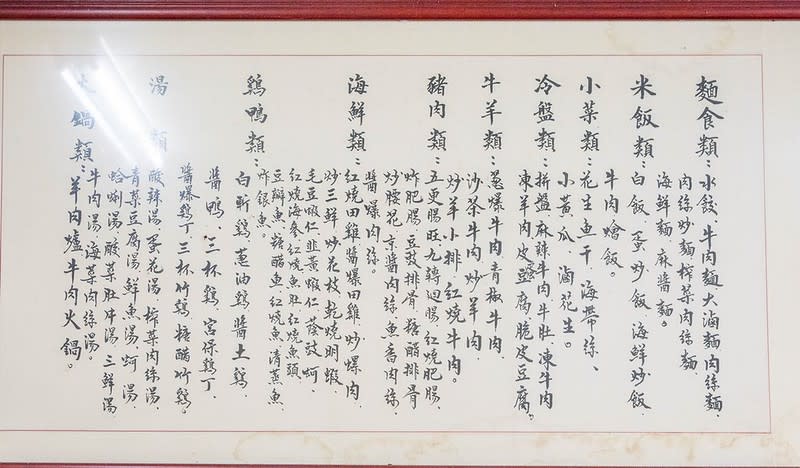 麵食類:水餃、牛肉麵、大滷麵、肉絲麵、
肉絲炒麵、榨菜肉絲麵、
海鮮麵、麻醬麵。
米飯類:白飯、蛋炒飯、海鮮炒飯、
牛肉燴飯。
小菜類:花生魚干、海帶絲、
小黃瓜、滷花生。
冷盤類:拼盤、麻辣牛肉、牛肚、凍牛肉
凍羊肉、皮蛋豆腐、脆皮豆腐。
牛羊類:蔥爆牛肉、青椒牛肉、
沙茶牛肉、炒羊肉、
炒羊小排、紅燒牛肉。
豬肉類:五更腸旺、九轉迴腸、紅燒肥腸、
炸肥腸、豆豉排骨、糖醋排骨
炒腰花、京醬肉絲、魚香肉絲、
醬爆肉絲。
海鮮類:紅燒田雞、醬爆田雞、炒螺肉、
炒三鮮、炒花枝、乾燒明蝦、
毛豆蝦仁、韭黃蝦仁、蔭豉蚵、
紅燒海參、紅燒魚肚、紅燒魚頭、
豆瓣魚、糖醋魚、紅燒魚、清蒸魚、
炸銀魚。
鷄鴨類:白斬鷄、蔥油鷄、醬土鷄、
醬鴨、三杯鷄、宮保鷄丁、
醬爆鷄丁、三杯竹鷄、糖醋竹鷄。
湯類:酸辣湯、蛋花湯、榨菜肉絲湯、
青菜豆腐湯、鮮魚湯、蚵湯、
蛤唎湯、酸菜肚片湯、三鮮湯
牛肉湯、海菜肉絲湯。
火鍋類:羊肉爐、牛肉火鍋。